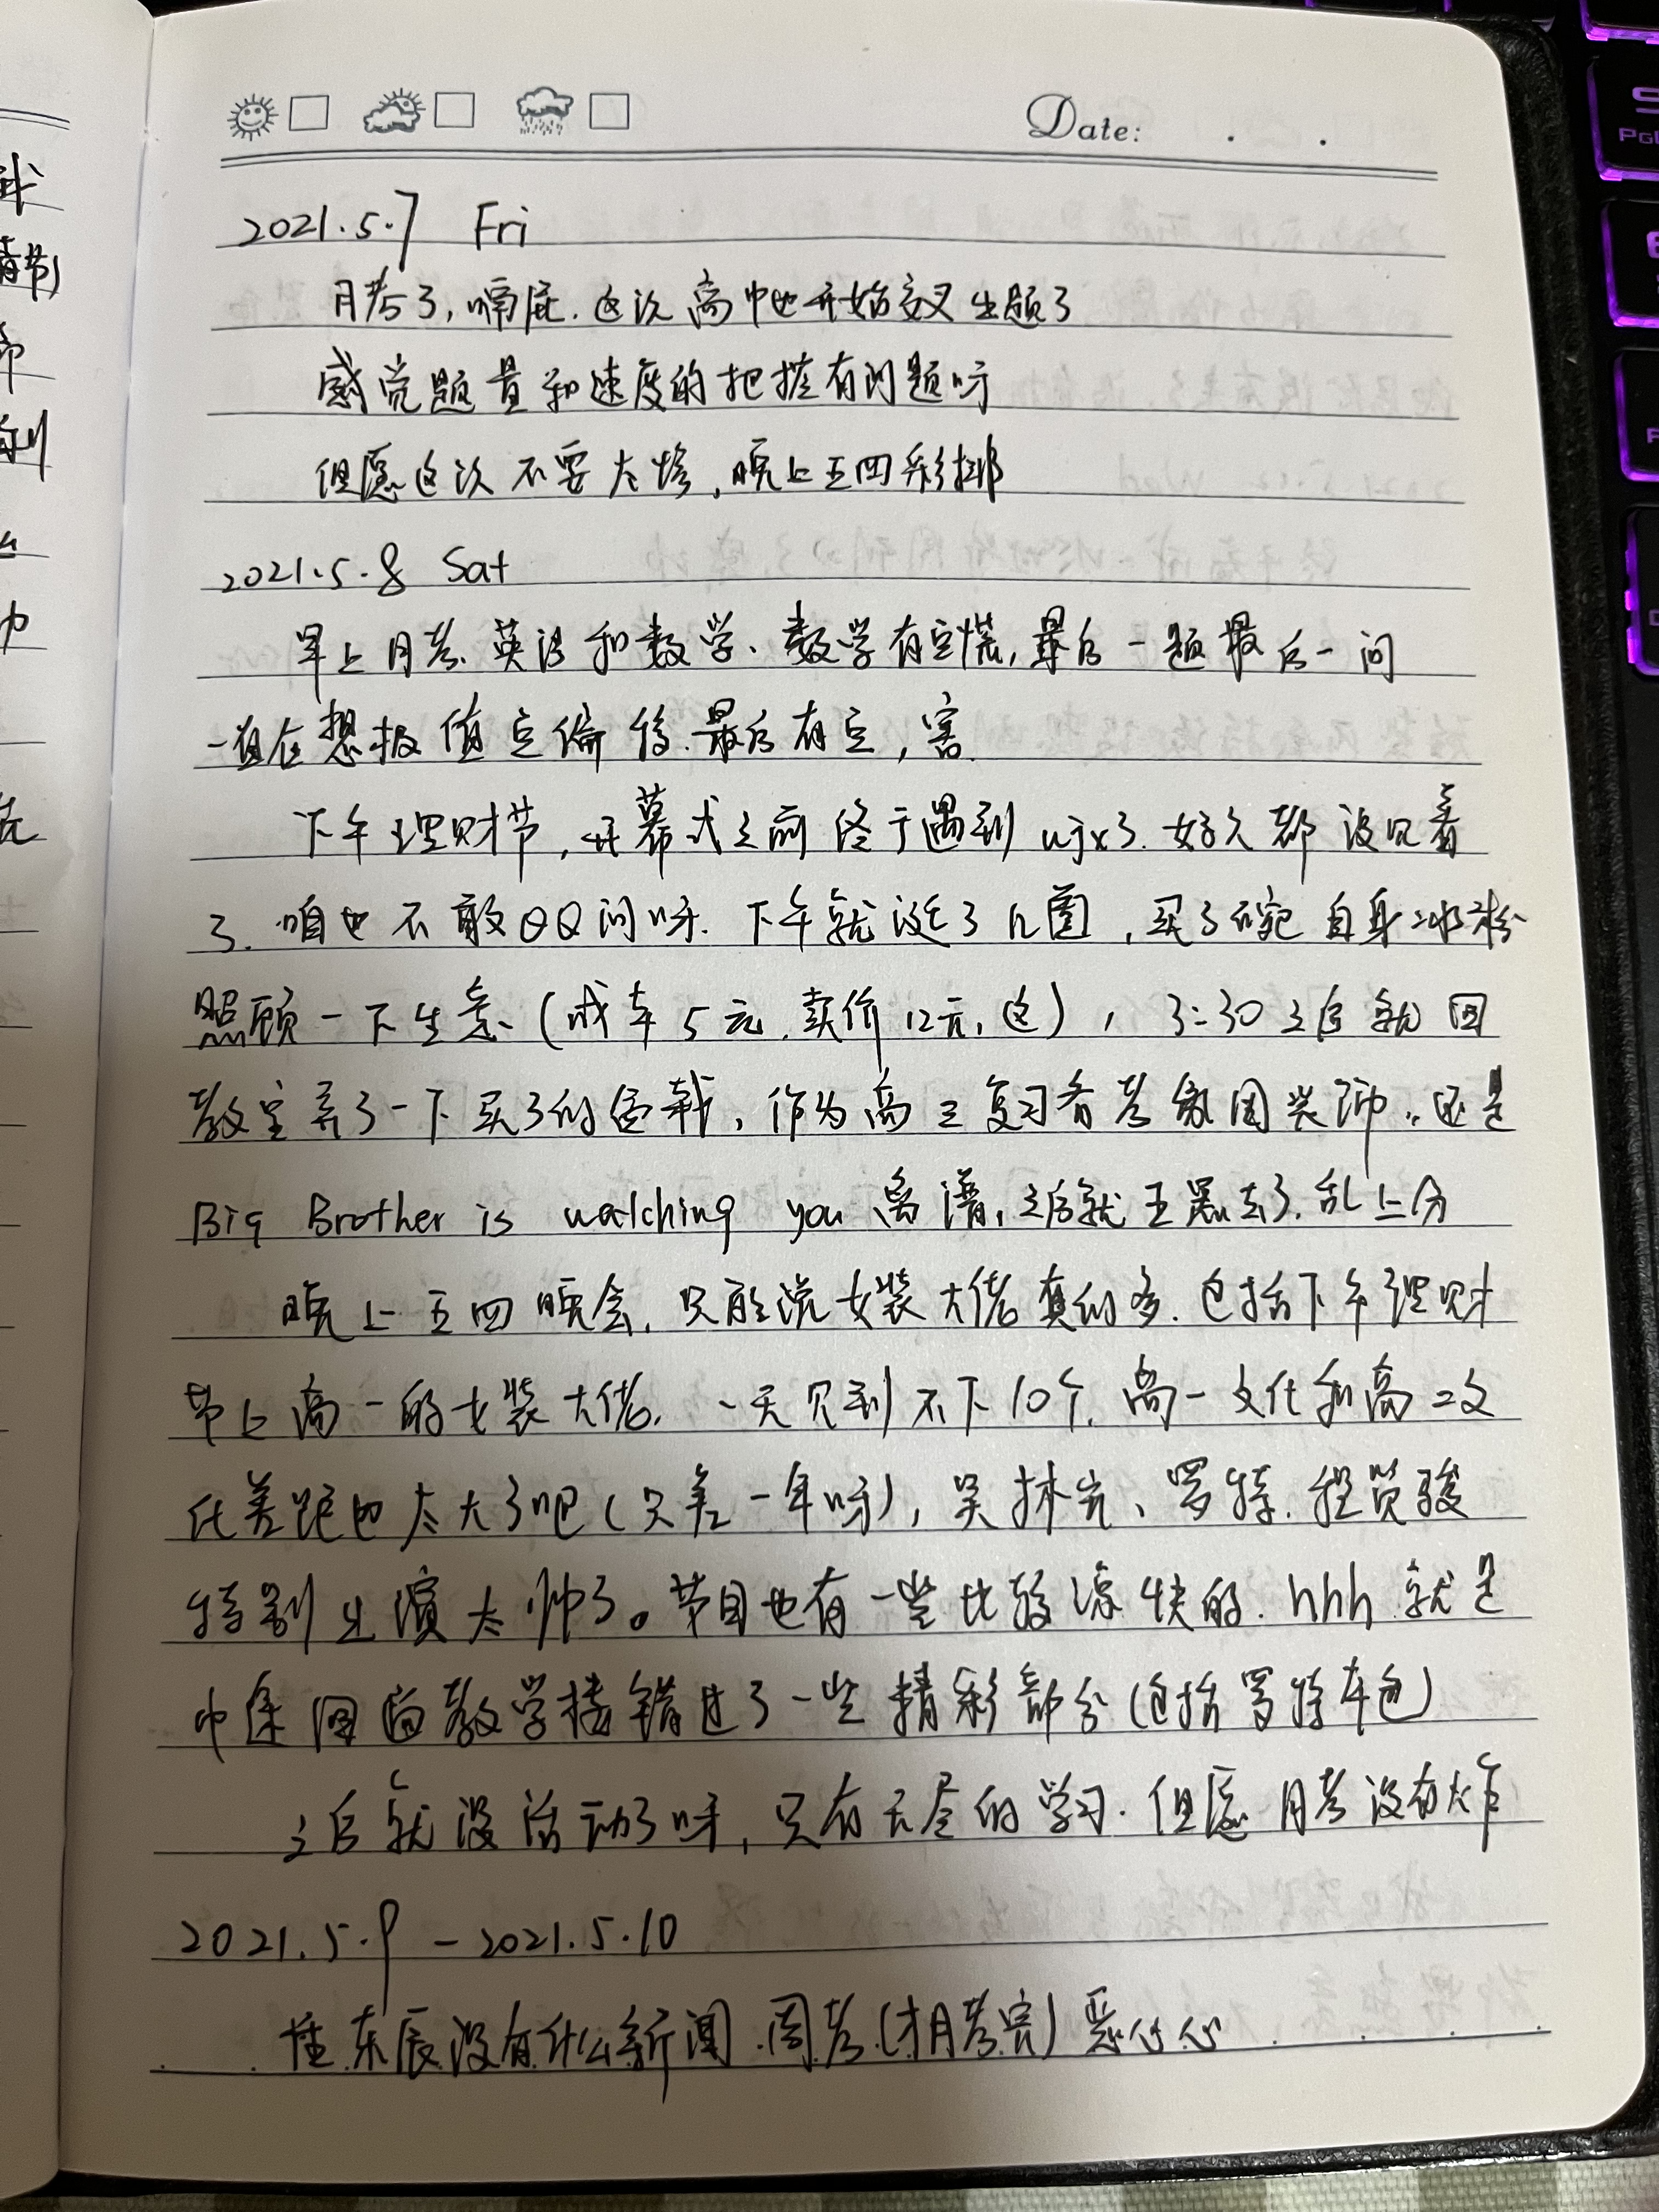 Date: . .
2021.5.7 Fri
月考了,嗝屁.这次高中也开始交叉出题了
感觉题量和速度的把握有问题呀
但愿这次不要太惨,晚上五四彩排
2021.5.8 Sat
早上月考、英语和数学、数学有点慌,最后一题最后一问
一直在想极值点偏移.最后有点,害
下午理财节,开幕式之前终于遇到 wjx了.好久都没见着
了.咱也不敢QQ问呀.下午就逛了几圈,买了碗自身冰粉
照顾一下生意(成本5元.卖价12元,这),3:30之后就回
教室弄了一下买了的,作为高三复习备考氛围装饰..还是
Big Brother is watching you 离谱,之后就王者去了.乱上分
晚上五四晚会,只能说女装大佬真的多.包括下午理财
节上高一的女装大佬.一天见到不下10个.高一文化和高二文
化差距也太大了吧(只差一年呀),吴林、罗特.程贤骏
特别出演太帅了。节目也有一些比较凉快的.hhh.就是
中途回教学楼错过了一些精彩部分(包括罗特车包)
之后就没活动了呀,只有无尽的学习.但愿月考没有太炸
2021.5.9 - 2021.5.10
东辰没有什么新闻.周考(才月考完)恶心心